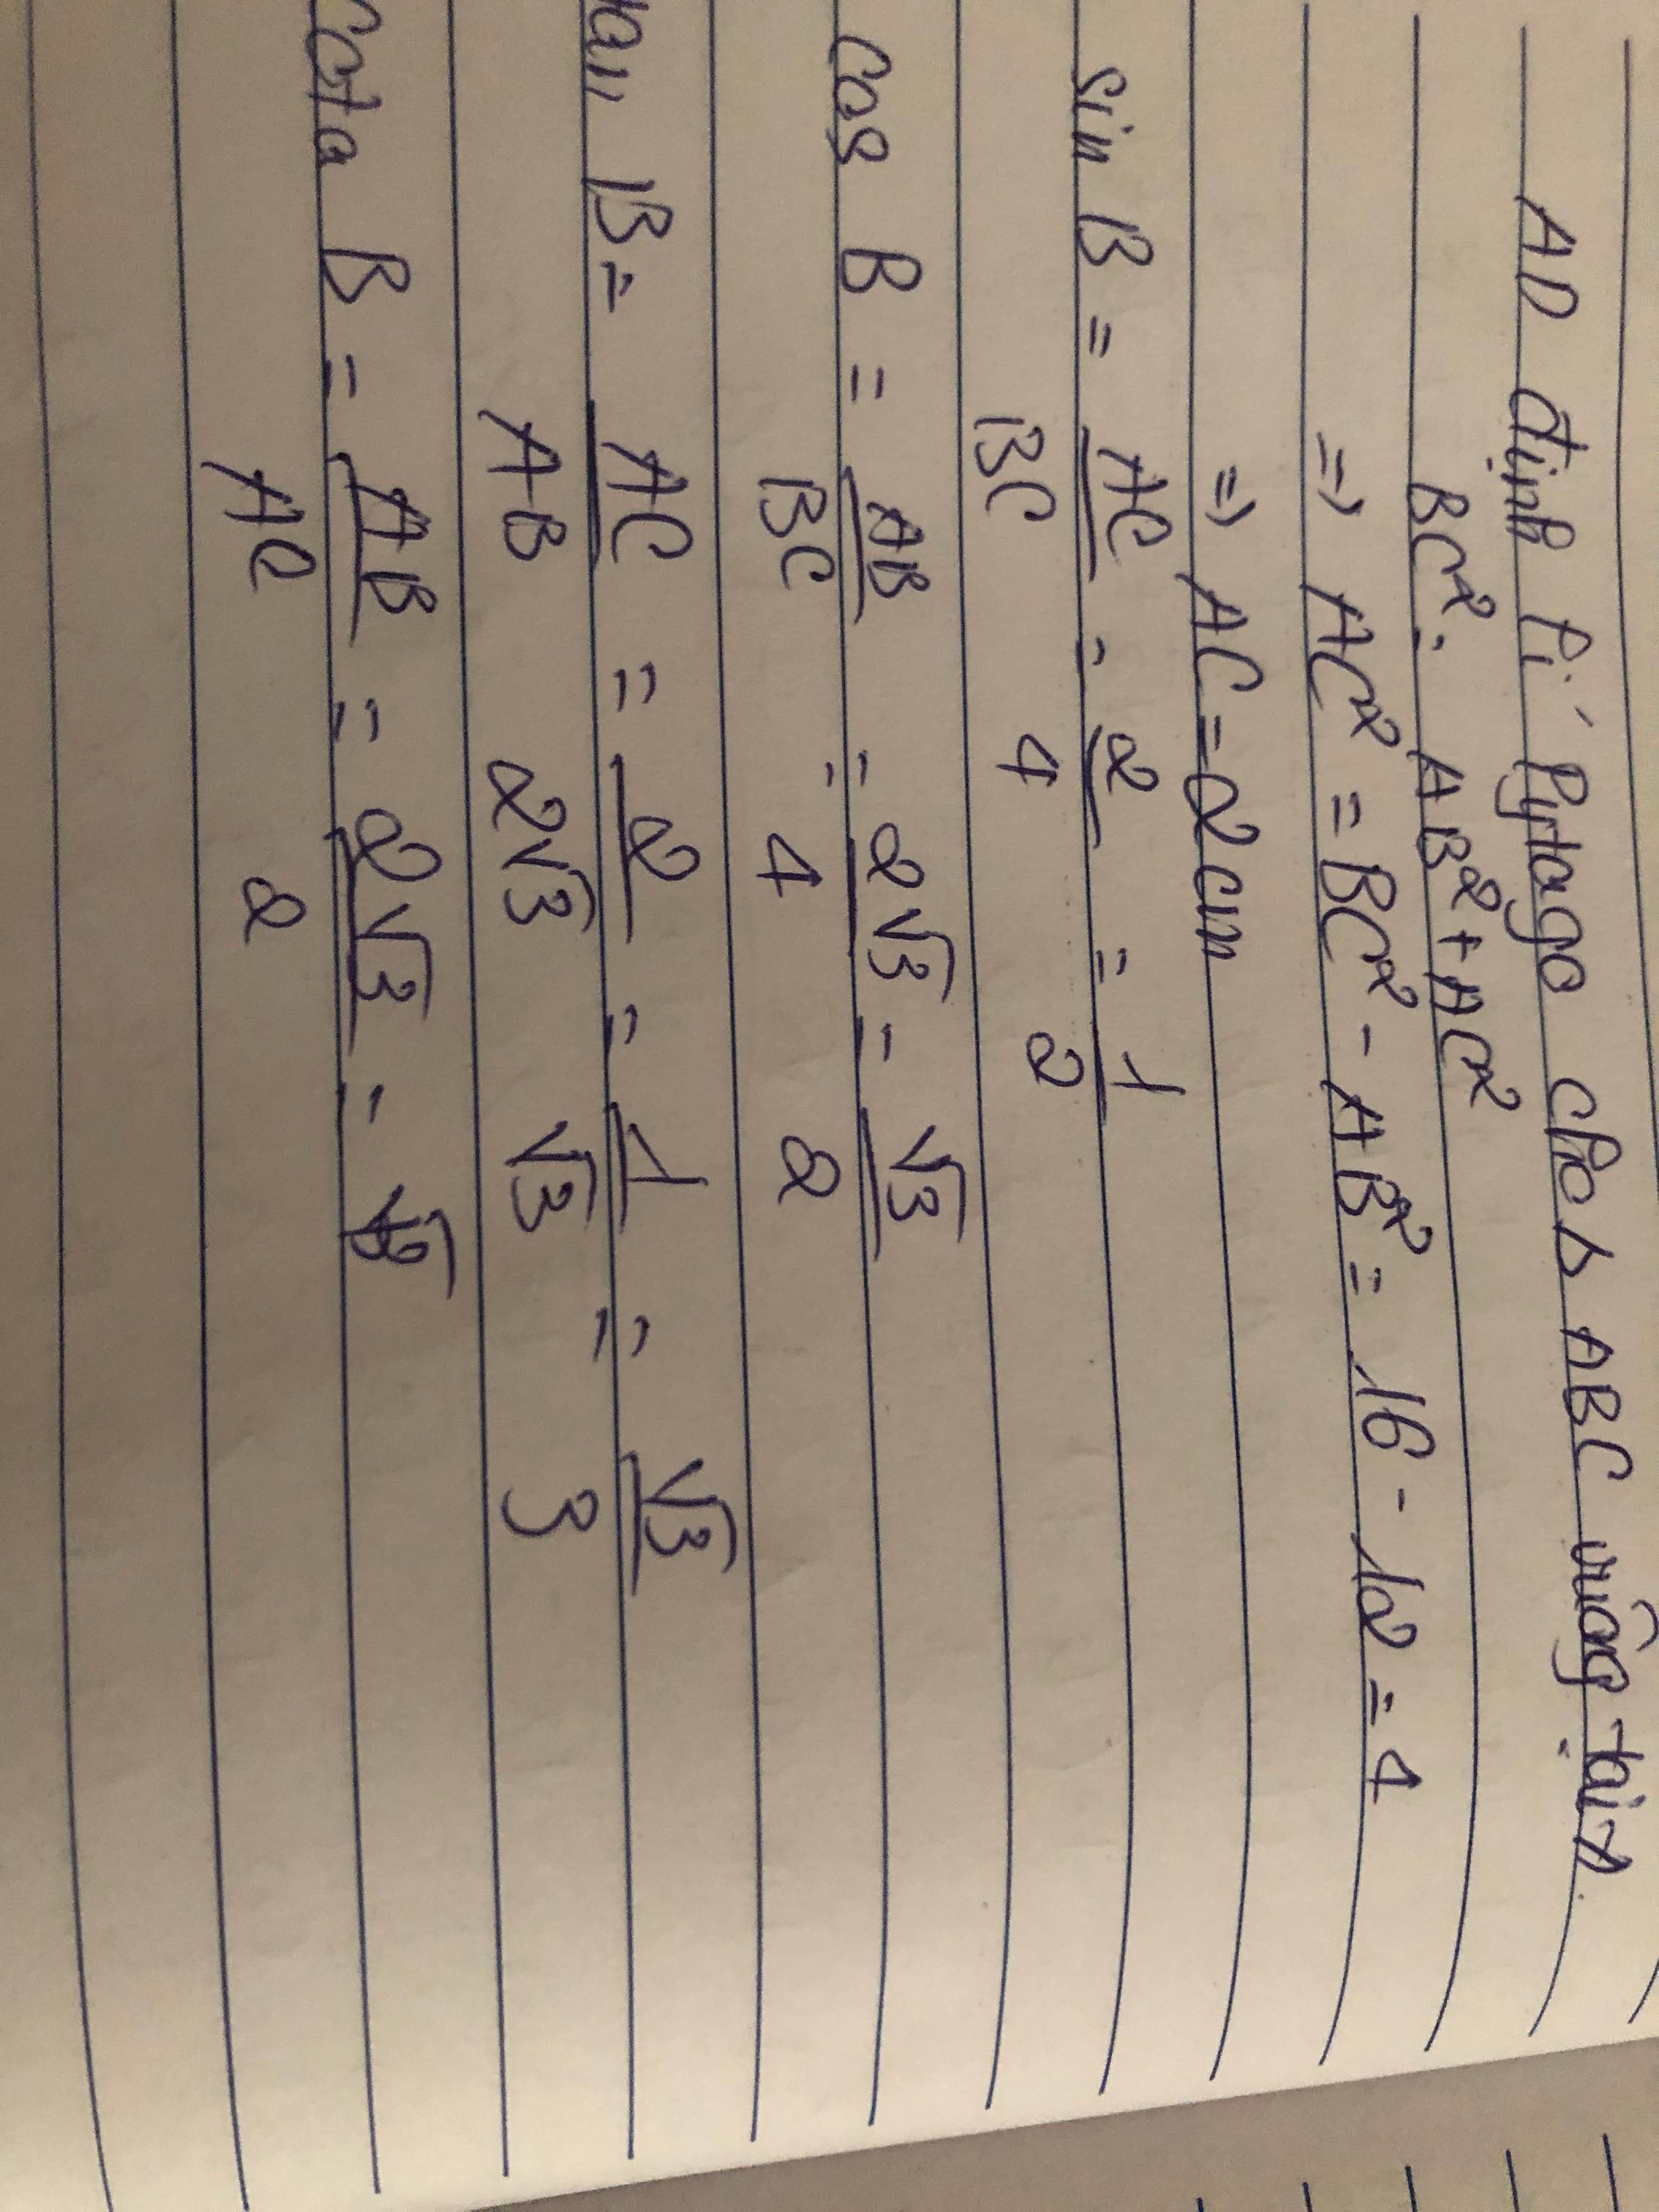 AD định lí Pytago cho Δ ABC vuông tại A.
BC² = AB² + AC²
=> AC² = BC² - AB² = 16 - 12 = 4
=> AC = 2 cm
sin B = AC/BC = 2/4 = 1/2
Cos B = AB/BC = 2√3/4 = √3/2
tan B = AC/AB = 2/2√3 = 1/√3 = √3/3
Cota B = AB/AC = 2√3/2 = √3